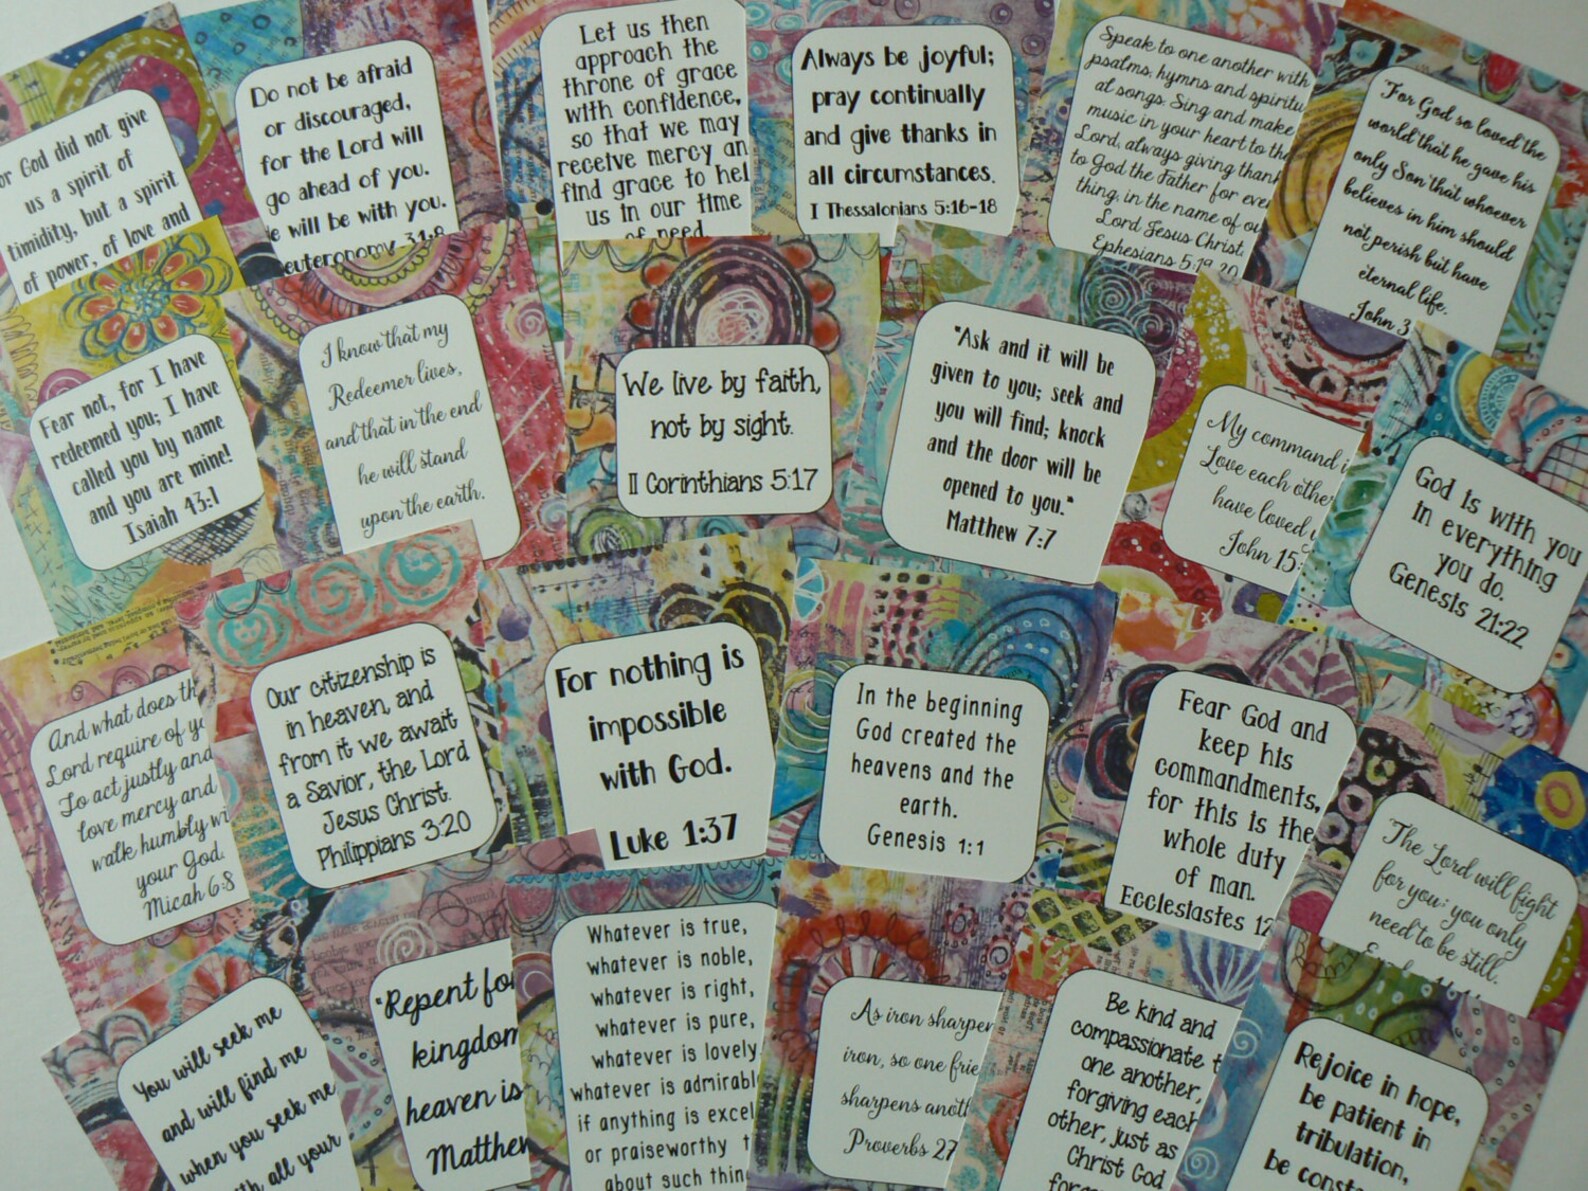 or God did not give
us a spirit of
timidity, but a spirit
of power, of love and
Do not be afraid
or discouraged,
for the Lord will
go ahead of you.
e will be with you.
euteronomy 31:8
Let us then
approach the
throne of grace
with confidence,
so that we may
receive mercy an
find grace to hel
us in our time
of need
Always be joyful;
pray continually
and give thanks in
all circumstances.
I Thessalonians 5:16-18
Speak to one another with
psalms, hymns and spiritu
al songs. Sing and make
music in your heart to the
Lord, always giving thank
to God the Father for eve
thing, in the name of ou
Lord Jesus Christ.
Ephesians 5:19,20
"For God so loved the
world that he gave his
only Son that whoever
believes in him should
not perish but have
eternal life.
John 3
Fear not, for I have
redeemed you; I have
called you by name
and you are mine!
Isaiah 43:1
I know that my
Redeemer lives,
and that in the end
he will stand
upon the earth.
We live by faith,
not by sight.
II Corinthians 5:17
"Ask and it will be
given to you; seek and
you will find; knock
and the door will be
opened to you."
Matthew 7:7
My command i
Love each other
have loved y
John 15:
God is with you
in everything
you do.
Genesis 21:22
And what does th
Lord require of yo
To act justly and
love mercy and
walk humbly wi
your God.
Micah 6:8
Our citizenship is
in heaven, and
from it we await
a Savior, the Lord
Jesus Christ.
Philippians 3:20
For nothing is
impossible
with God.
Luke 1:37
In the beginning
God created the
heavens and the
earth.
Genesis 1:1
Fear God and
keep his
commandments,
for this is the
whole duty
of man.
Ecclesiastes 12
"The Lord will fight
for you; you only
need to be still.
You will seek me
and will find me
when you seek me
th all your
"Repent for
kingdom
heaven is
Matthew
Whatever is true,
whatever is noble,
whatever is right,
whatever is pure,
whatever is lovely
whatever is admirabl
if anything is excel
or praiseworthy t
about such thin
As iron sharpen
iron, so one frie
sharpens anoth
Proverbs 27
Be kind and
compassionate t
one another,
forgiving each
other, just as
Christ God
forg
Rejoice in hope,
be patient in
tribulation,
be consta